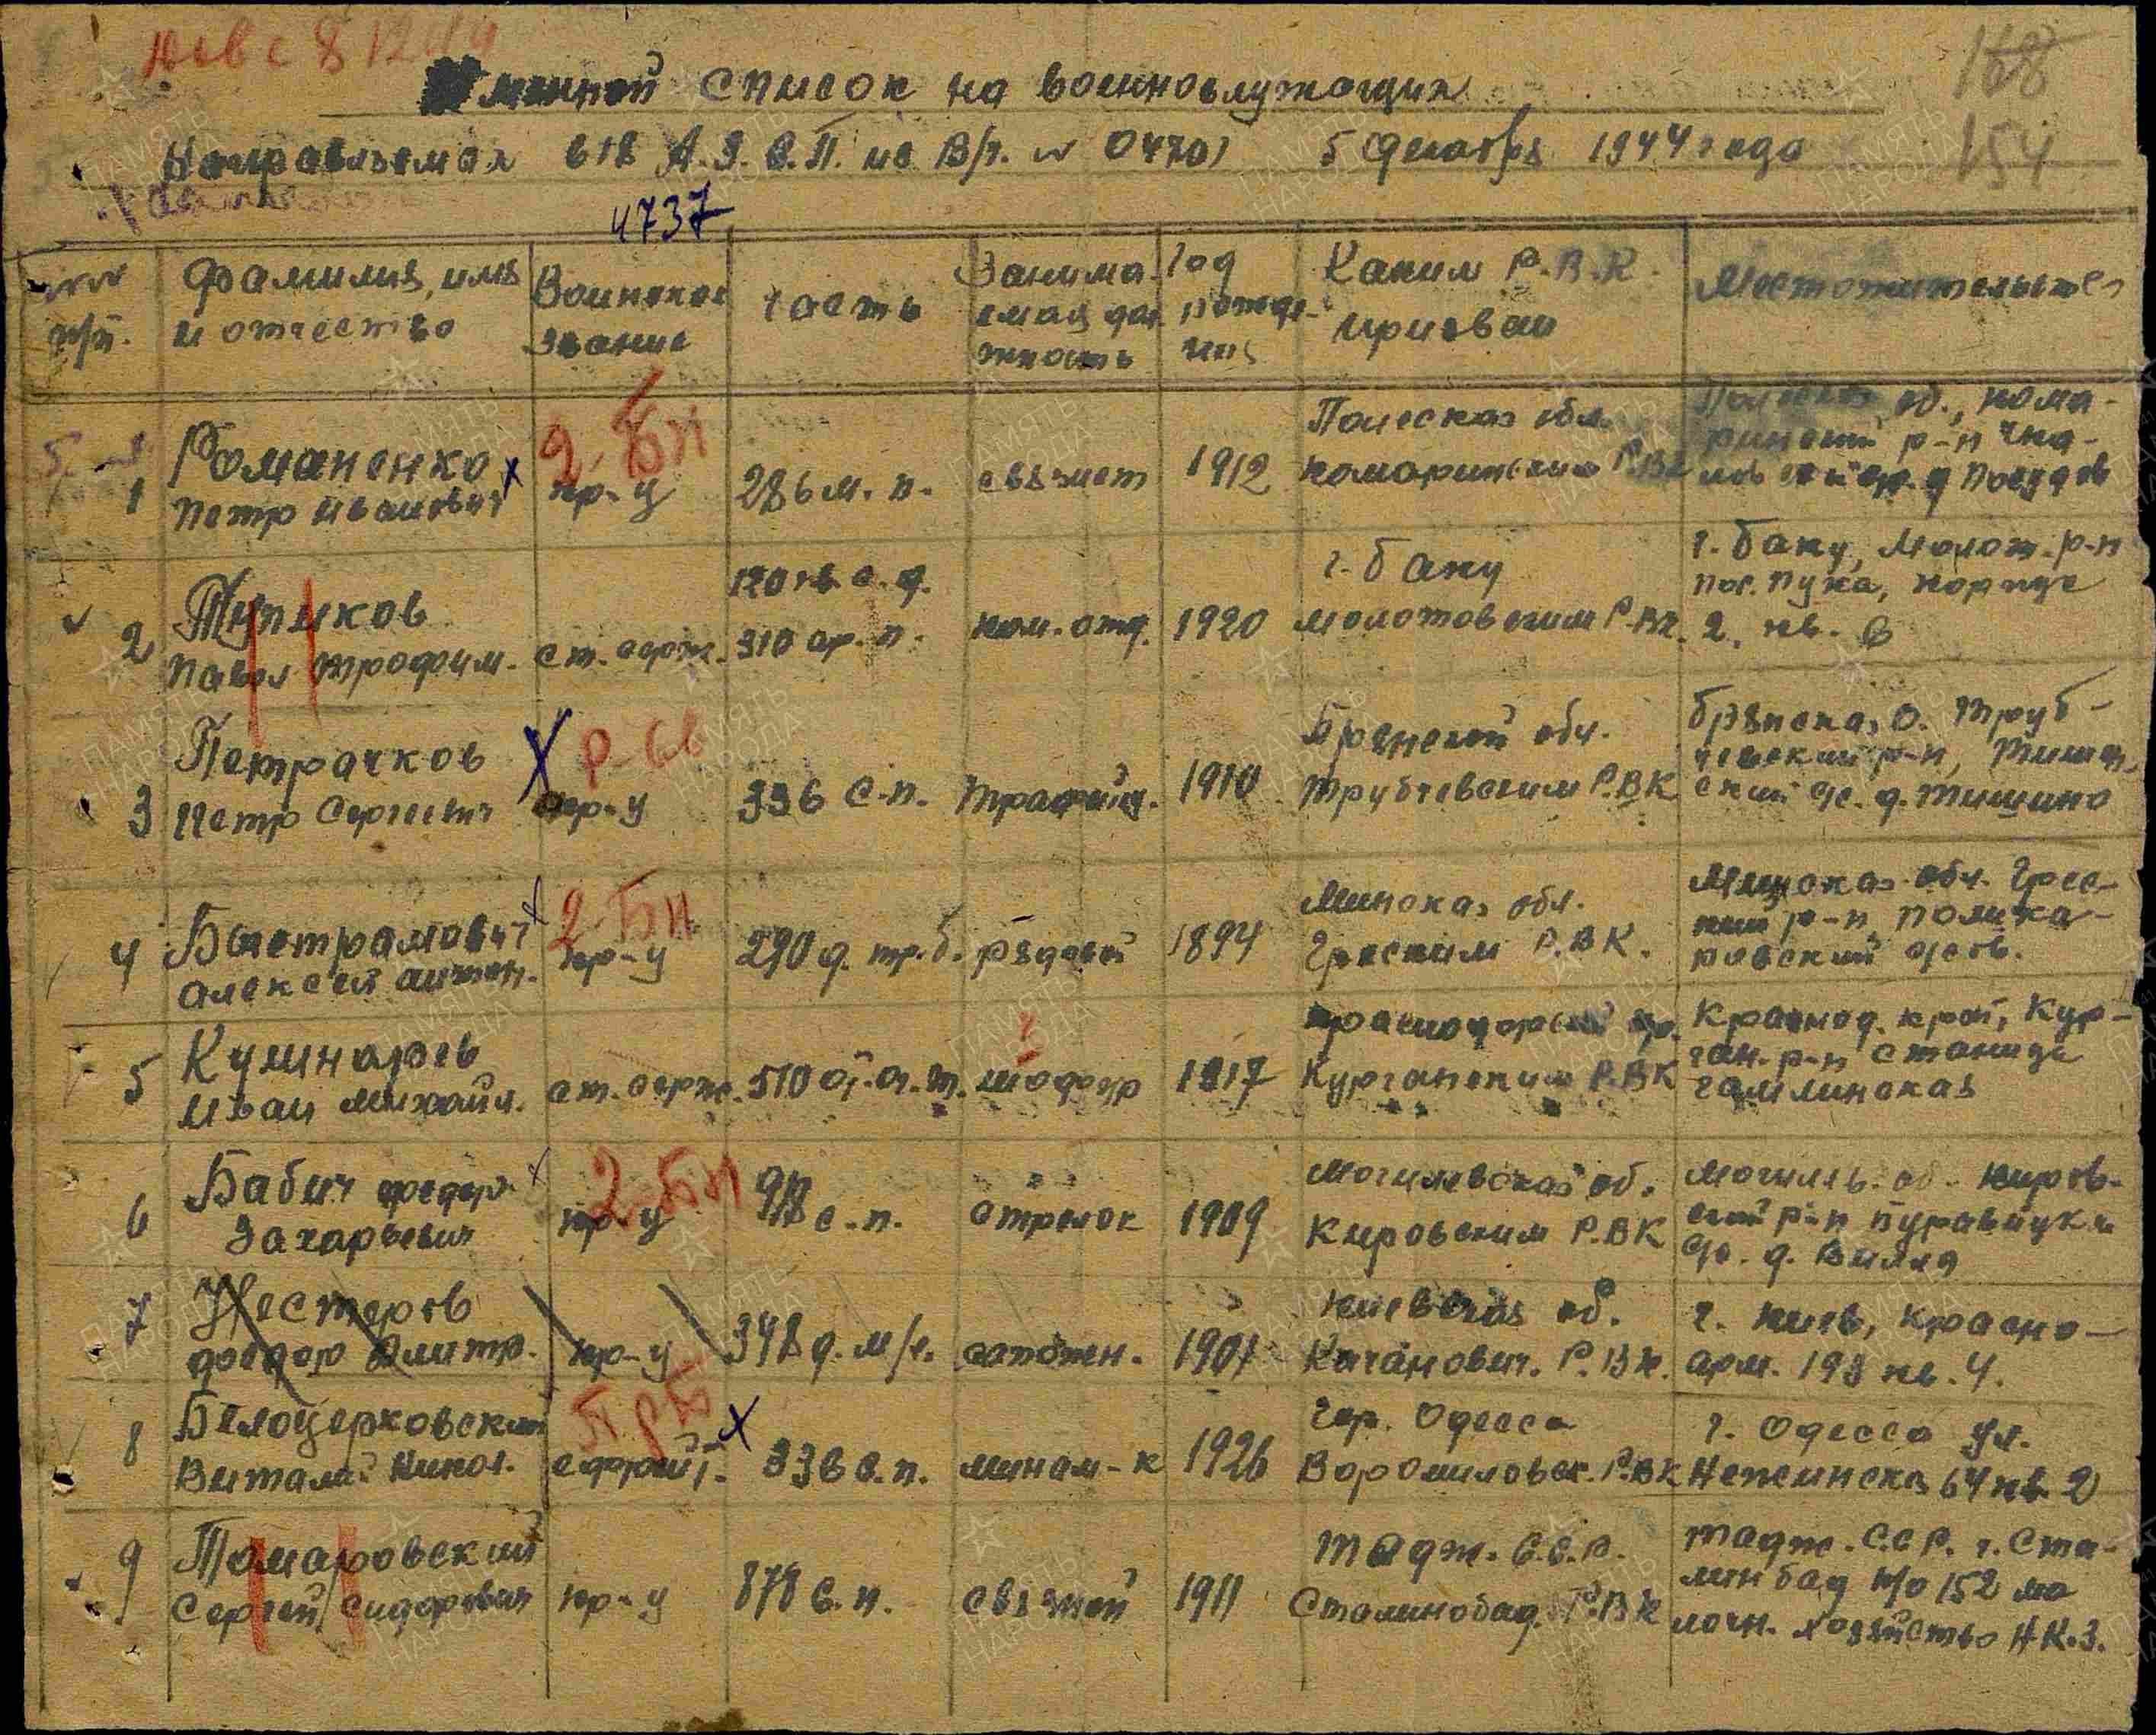 Именной список на военнослужащих
Направляемых в 18 А.З.С.П. из В/ч. № 04701 5 декабря 1944 года
4737
168
154
№№ п/п.
Фамилия, имя и отчество
Воинское звание
Часть
Занимаемая должность
Год рождения
Каким Р.В.К. призван
Местожительство
1
Романенко
Петр Иванович
2-Бн
кр-ц
286 м. п.
связист
1912
Полеская обл.
Комаринским Р.ВК
об., Кома-
ринский р-н
2
Тупиков
Павел Трофим.
ст. серж.
120 гв. с. д.
310 ар. п.
ком. отд.
1920
г. Баку
Молотовским Р.ВК.
г. Баку, Молот. р-н
корпус
2, кв. 6
3
Петрачков
Петр Сергеевич
кр-ц
336 с.п.
1910
Брянской обл.
Трубчевским Р.ВК
Брянская о. Труб-
чевский р-н, Тишин-
ский с/с. д. Тишино
4
Быстрамович
Алексей Антон.
2-Бн
кр-ц
290 д. тр. б.
рядовой
1894
Минская обл.
Греским Р.ВК.
Минская обл. Грес-
кий р-н,
5
Кушнарев
Иван Михайл.
ст. серж.
шофер
1917
Краснодарский кр.
Курганским Р.ВК
Краснод. край, Кур-
ган. р-н станица
6
Бабич Федор
Захарьевич
2-Бн
кр-ц
с.п.
стрелок
1909
Могилевская об.
Кировским Р.ВК
Могилев. об. Киров-
ский р-н
7
Нестеров
Федор Дмитр.
кр-ц
348 д. м/с.
сапожн.
1901
Киевская об.
Каганович. Р.ВК.
г. Киев, Красно-
арм. 193 кв. 4.
8
Белоцерковский
Виталий Никол.
ефрейт.
336 с.п.
мином-к
1926
Гор. Одесса
Ворошиловск. Р.ВК
г. Одесса ул.
Нежинская 64 кв. 2
9
Томаровский
Сергей Сидорович
кр-ц
878 с.п.
связной
1911
Тадж. С.С.Р.
Сталинобад. Р.ВК
Тадж. С.С.Р. г. Ста-
линбад п/о 152 мо
лочн. хозяйство Н.К.З.
ПАМЯТЬ НАРОДА